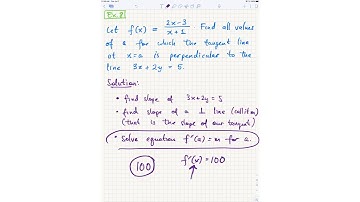 Ex. 8
Let f(x) = 2x-3 / x+1. Find all values
of a for which the tangent line
at x=a is perpendicular to the
line 3x + 2y = 5.
Solution:
• find slope of 3x+2y = 5
• find slope of a ⊥ line
(that is the slope of our tangent)
• Solve equation f'(a) = m for a.
100
f'( ) = 100